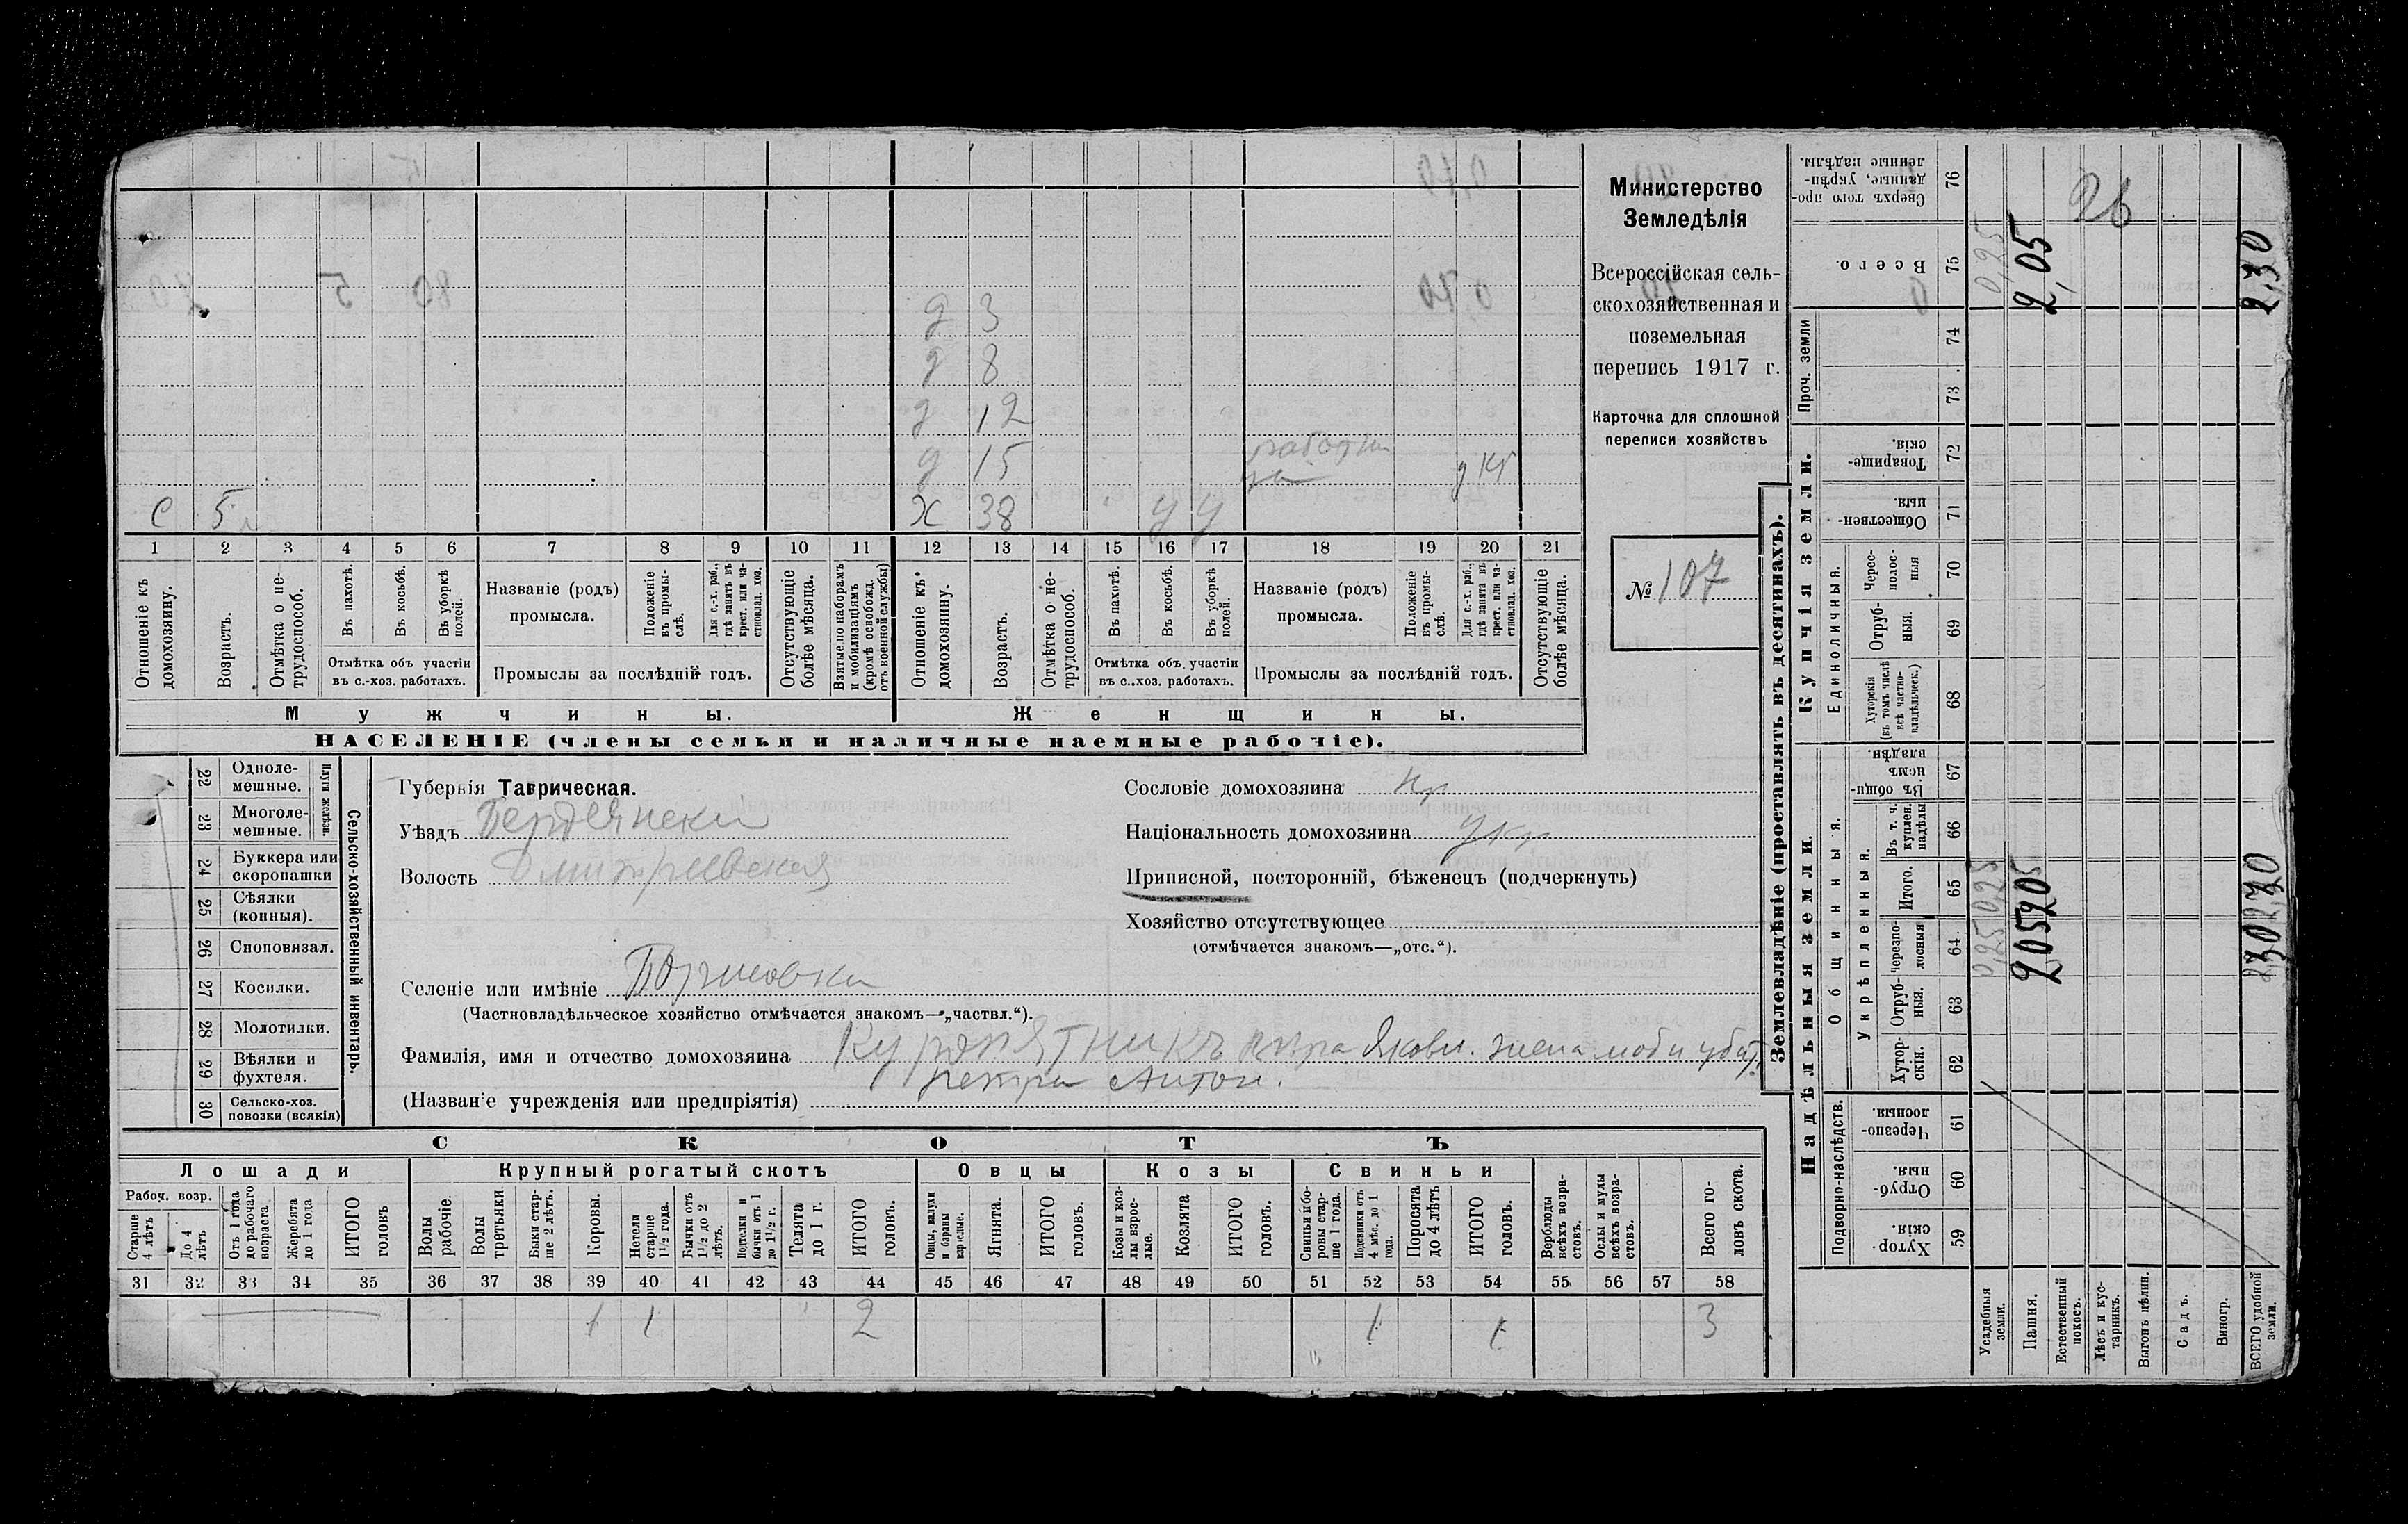 Министерство
Земледѣлія
Всероссійская сель-
скохозяйственная и
поземельная
перепись 1917 г.
Карточка для сплошной
переписи хозяйствъ
№ 107
д 3
д 8
д 12
д 15 работни
ца д кр
с 5 х 38 у у
1 2 3 4 5 6 7 8 9 10 11 12 13 14 15 16 17 18 19 20 21
Отношеніе къ домохозяину.
Возрастъ.
Отмѣтка о не-трудоспособ.
Въ пахотѣ.
Въ косьбѣ.
Въ уборкѣ полей.
Отмѣтка объ участіи
въ с.-хоз. работахъ.
Названіе (родъ)
промысла.
Положеніе въ промы-слѣ.
Для с.-х. раб., гдѣ занятъ въ крест. или ча-стновлад. хоз.
Промыслы за послѣдній годъ.
Отсутствующіе болѣе мѣсяца.
Взятые по наборамъ и мобилизаціямъ (кромѣ освобожд. отъ военной службы)
Отношеніе къ домохозяину.
Возрастъ.
Отмѣтка о не-трудоспособ.
Въ пахотѣ.
Въ косьбѣ.
Въ уборкѣ полей.
Отмѣтка объ участіи
въ с.-хоз. работахъ.
Названіе (родъ)
промысла.
Положеніе въ промы-слѣ.
Для с.-х. раб., гдѣ занята въ крест. или ча-стновлад. хоз.
Промыслы за послѣдній годъ.
Отсутствующіе болѣе мѣсяца.
Мужчины. Женщины.
НАСЕЛЕНІЕ (члены семьи и наличные наемные рабочіе).
Сельско-хозяйственный инвентарь.
Плуги желѣзн.
22 Одноле-
мешные.
23 Многоле-
мешные.
24 Буккера или
скоропашки
25 Сѣялки
(конныя).
26 Сноповязал.
27 Косилки.
28 Молотилки.
29 Вѣялки и
фухтеля.
30 Сельско-хоз.
повозки (всякія)
Губернія Таврическая.
Уѣздъ Бердянский
Волость Дмитриевская
Селеніе или имѣніе
(Частновладѣльческое хозяйство отмѣчается знакомъ—„частвл.“).
Фамилія, имя и отчество домохозяина Куропятникъ Яковл. жена моб и убит
Петра Антон.
(Названіе учрежденія или предпріятія)
Сословіе домохозяина кр
Національность домохозяина Укр
Приписной, посторонній, бѣженецъ (подчеркнуть)
Хозяйство отсутствующее
(отмѣчается знакомъ—„отс.“).
СКОТЪ
Лошади Крупный рогатый скотъ Овцы Козы Свиньи
Рабоч. возр.
Старше 4 лѣтъ
До 4 лѣтъ
Отъ 1 года до рабочаго возраста
Жеребята до 1 года
ИТОГО головъ
Волы рабочіе.
Волы третьяки.
Быки стар-ше 2 лѣтъ.
Коровы.
Нетели старше 1½ года.
Бычки отъ 1½ до 2 лѣтъ.
Подтелки и бычки отъ 1 до 1½ г.
Телята до 1 г.
ИТОГО головъ.
Овцы, валухи и бараны взрослые.
Ягнята.
ИТОГО головъ.
Козы и коз-лы взрос-лые.
Козлята
ИТОГО головъ.
Свиньи и бо-ровы стар-ше 1 года.
Подсвинки отъ 4 мѣс. до 1 года.
Поросята до 4 лѣтъ
ИТОГО головъ.
Верблюды всѣхъ возра-стовъ.
Ослы и мулы всѣхъ возра-стовъ.
Всего го-ловъ скота.
31 32 33 34 35 36 37 38 39 40 41 42 43 44 45 46 47 48 49 50 51 52 53 54 55 56 57 58
1 1 2 1 1 3
Землевладѣніе (проставлять въ десятинахъ).
Надѣльныя земли. Купчія земли.
Подворно-наслѣдств.
Общинныя.
Укрѣпленныя.
Единоличныя.
Проч. земли
76 Сверхъ того про-данные, укрѣп-ленные надѣлы.
75 Всего.
74
73
72 Товарище-скія.
71 Обществен-ныя.
70 Черес-полос-ныя
69 Отруб-ныя.
68 Хуторскія (въ томъ числѣ всѣ частно-владѣльческ.)
67 Въ общи-номъ владѣн.
66 Въ т. ч. куплен. надѣлы
65 Итого.
64 Черезпо-лосныя
63 Отруб-ныя.
62 Хутор-скія.
61 Черезпо-лосныя.
60 Отруб-ныя.
59 Хутор-скія.
Усадебныя земли. 0,25 0,25 0,25
Пашня. 205 205 2,05
Естественный покосъ.
Лѣсъ и кус-тарникъ.
Выгонъ цѣлин.
Садъ.
Виногр.
ВСЕГО удобной земли. 2,30 2,30 2,30
26